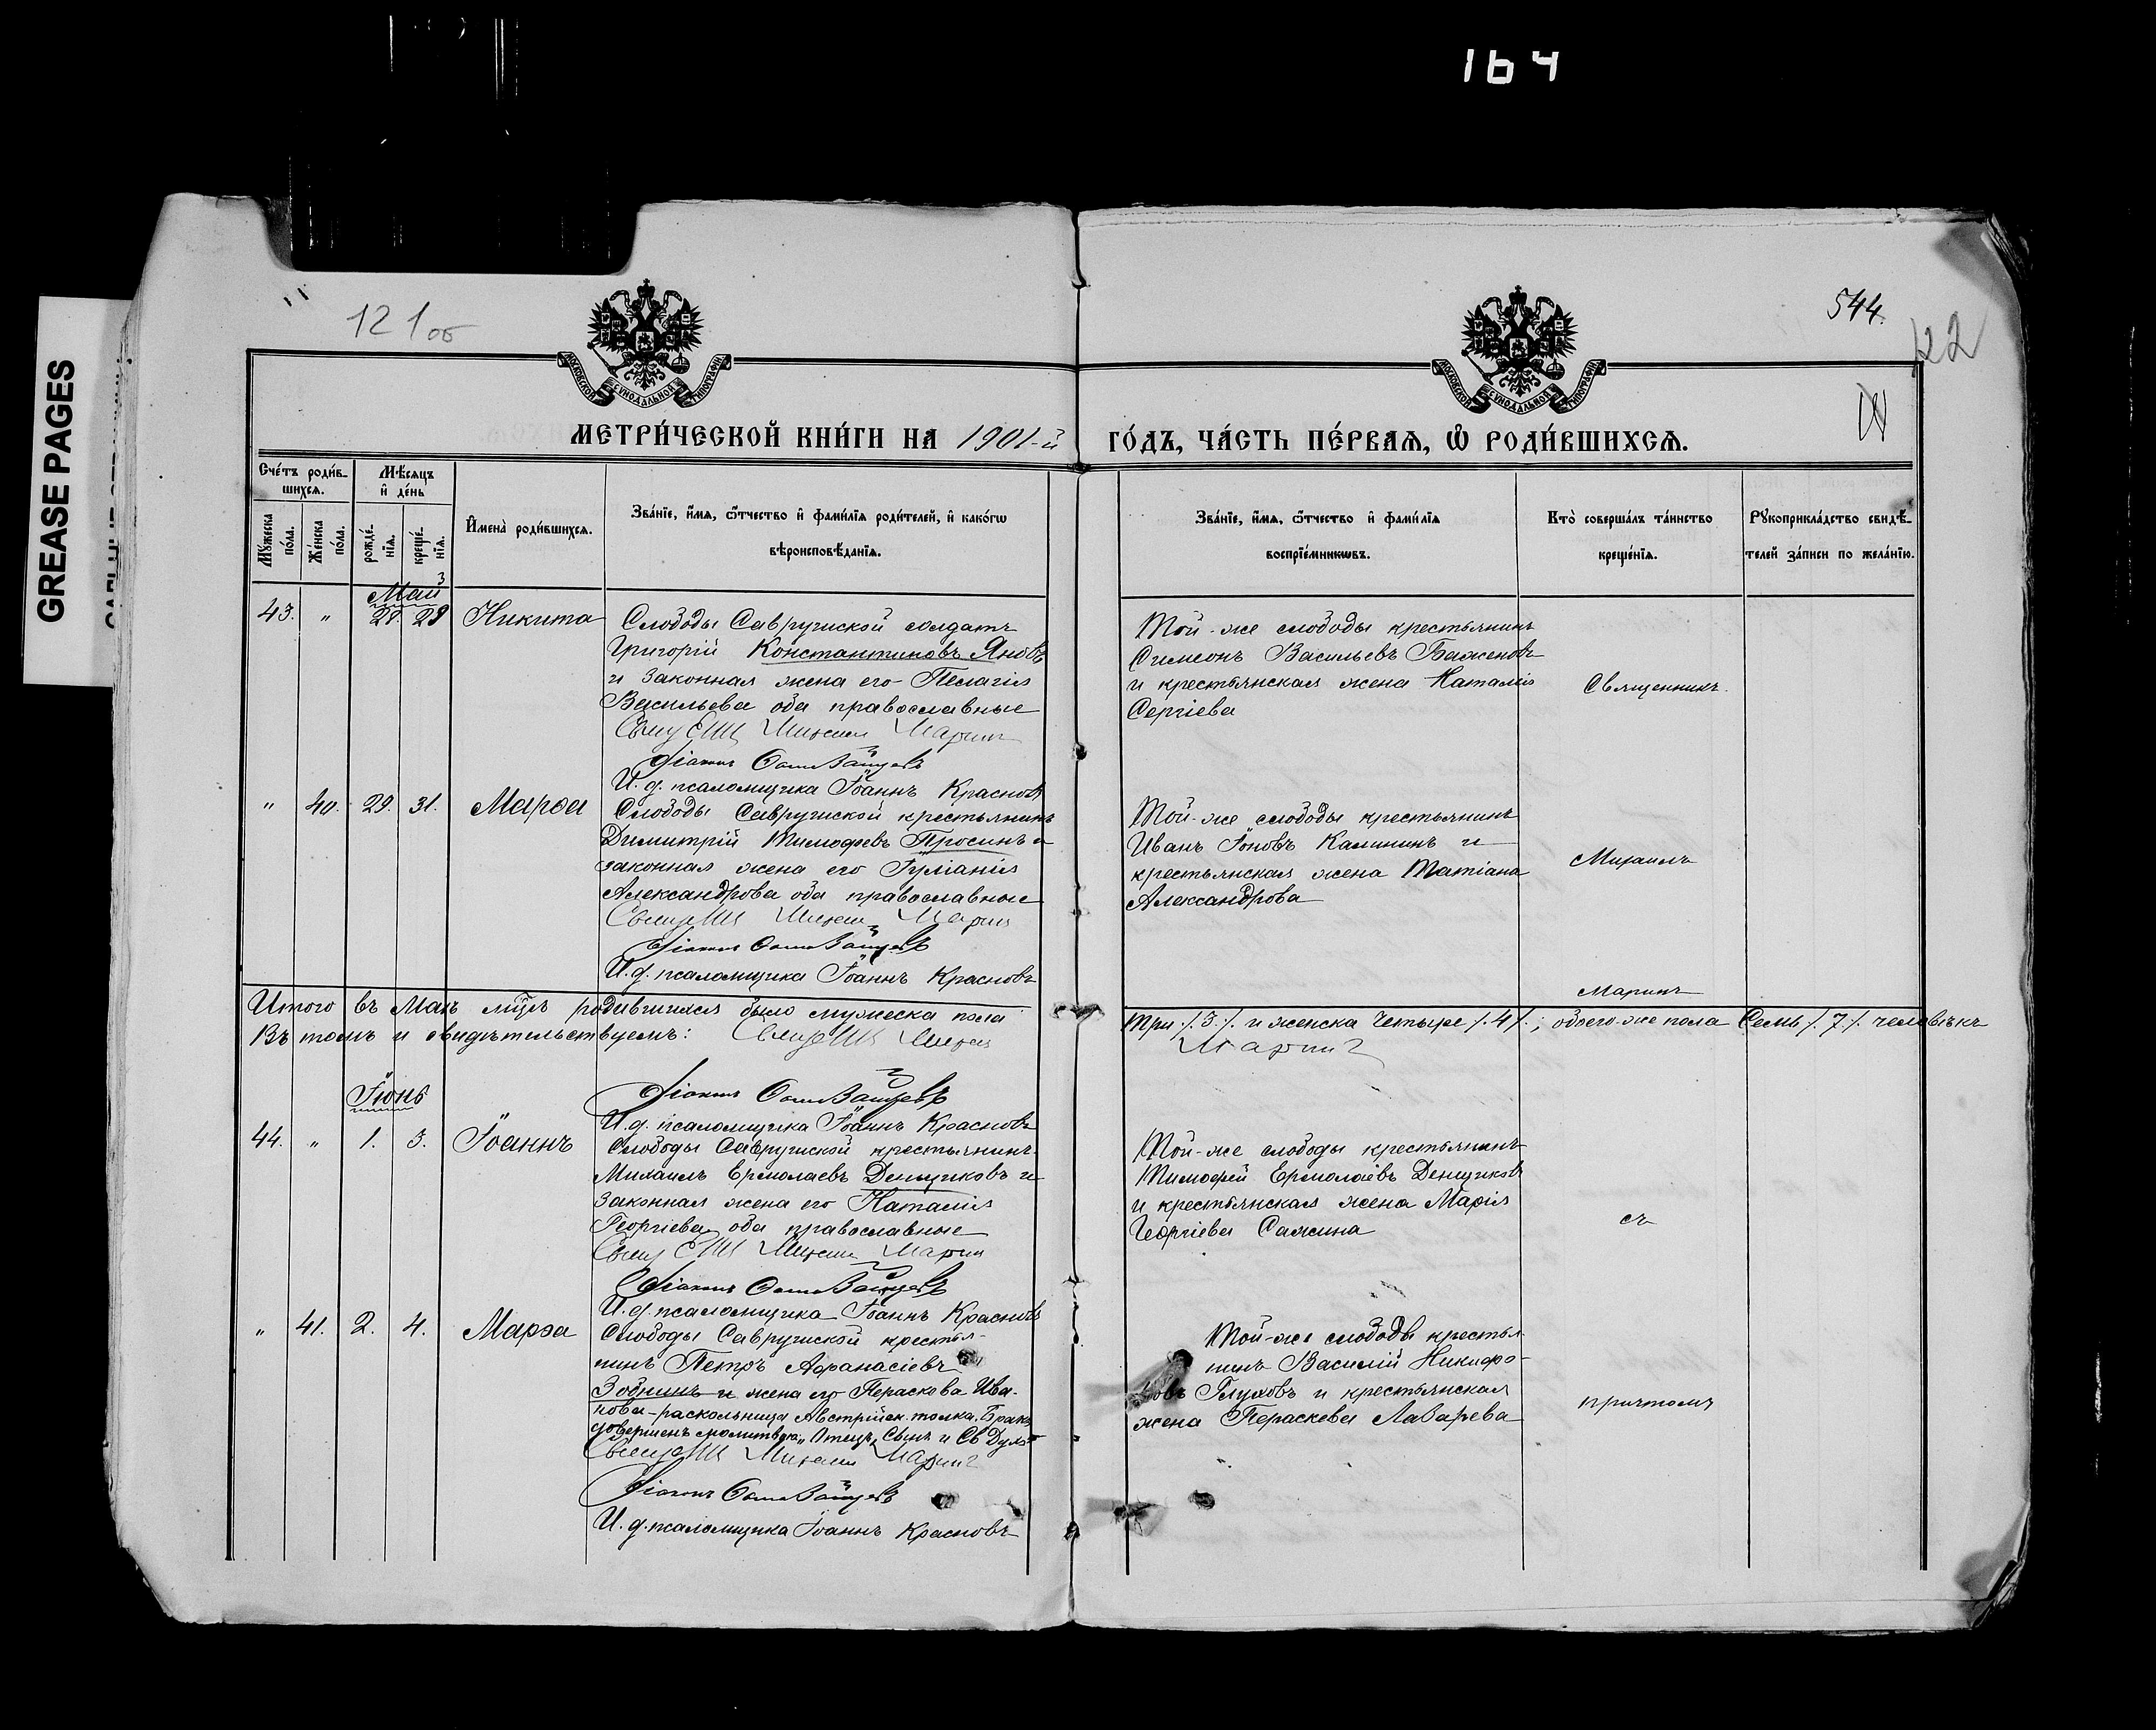 164
GREASE PAGES
121 об
544.
122
МОСКОВСКОЙ СѴНОДАЛЬНОЙ ТИПОГРАФІИ
МОСКОВСКОЙ СѴНОДАЛЬНОЙ ТИПОГРАФІИ
МЕТРИ́ЧЕСКОЙ КНИ́ГИ НА 1901-й ГО́ДЪ, ЧА́СТЬ ПЕ́РВАѦ, Ѡ҆ РОДИ́ВШИХСѦ.
Сче́тъ роди́в-
шихсѧ.
Мѣ́сѧцъ
и҆ де́нь
Мꙋ́жеска
по́ла.
Же́нска
по́ла.
рожде́-
нїѧ.
креще́-
нїѧ.
И҆мена̀ роди́вшихсѧ.
Зва́нїе, и҆́мѧ, ѻ҆́тчество и҆ фами́лїѧ роди́телей, и҆ како́гѡ
вѣроисповѣ́данїѧ.
Зва́нїе, и҆́мѧ, ѻ҆́тчество и҆ фами́лїѧ
воспрїе́мникѡвъ.
Кто̀ соверша́лъ та́инство
креще́нїѧ.
Рꙋкоприкла́дство свидѣ́-
телей за́писи по жела́нїю.
Май
43. " 28. 29 Никита
3
Слободы Саврушской солдатъ
Григорій Константиновъ Яновъ
и законная жена его Пелагія
Васильева оба православные
Свящ Михаил Марин
Діаконъ Зайцевъ
И. д. псаломщика Іоаннъ Красновъ
Той-же слободы крестьянинъ
Симеонъ Васильевъ Баженовъ
и крестьянская жена Наталія
Сергіева
Священникъ
" 40. 29. 31. Марѳа
Слободы Саврушской крестьянинъ
Димитрій Тимофеевъ Просинъ и
законная жена его Іуліанія
Александрова оба православные
Михаил Марин
Діаконъ Зайцевъ
И. д. псаломщика Іоаннъ Красновъ
Той-же слободы крестьянинъ
Иванъ Іоновъ Калининъ и
крестьянская жена Татіана
Александрова
Михаилъ
Маринъ
Итого въ Маѣ мцѣ родившихся было мужеска пола три /3/. и женска четыре /4/.; обоего-же пола Семь /7/. человѣкъ
Въ томъ и свидѣтельствуемъ: Михаил Марин
Діаконъ Зайцевъ
И. д. псаломщика Іоаннъ Красновъ
Іюнь
44. " 1. 3. Іоаннъ
Слободы Саврушской крестьянинъ
Михаилъ Ермолаевъ Денщиковъ и
законная жена его Наталія
Георгіева оба православные
Свящ Михаил Марин
Діаконъ Зайцевъ
И. д. псаломщика Іоаннъ Красновъ
Той-же слободы крестьянинъ
Тимофей Ермолаевъ Денщиковъ
и крестьянская жена Марія
Георгіева Сажина
съ
" 41. 2. 4. Марѳа
Слободы Саврушской крестья-
нинъ Петръ Афанасіевъ
Зобнинъ и жена его Параскева Ива-
нова-раскольница Австрійск. толка. Бракъ
совершенъ молитвою „Отецъ, Сынъ и Св Духъ"
Михаил Марин
Діаконъ Зайцевъ
И. д. псаломщика Іоаннъ Красновъ
Той-же слободы крестья-
нинъ Василій Никифо-
ровъ Глуховъ и крестьянская
жена Параскева Лазарева
причтомъ